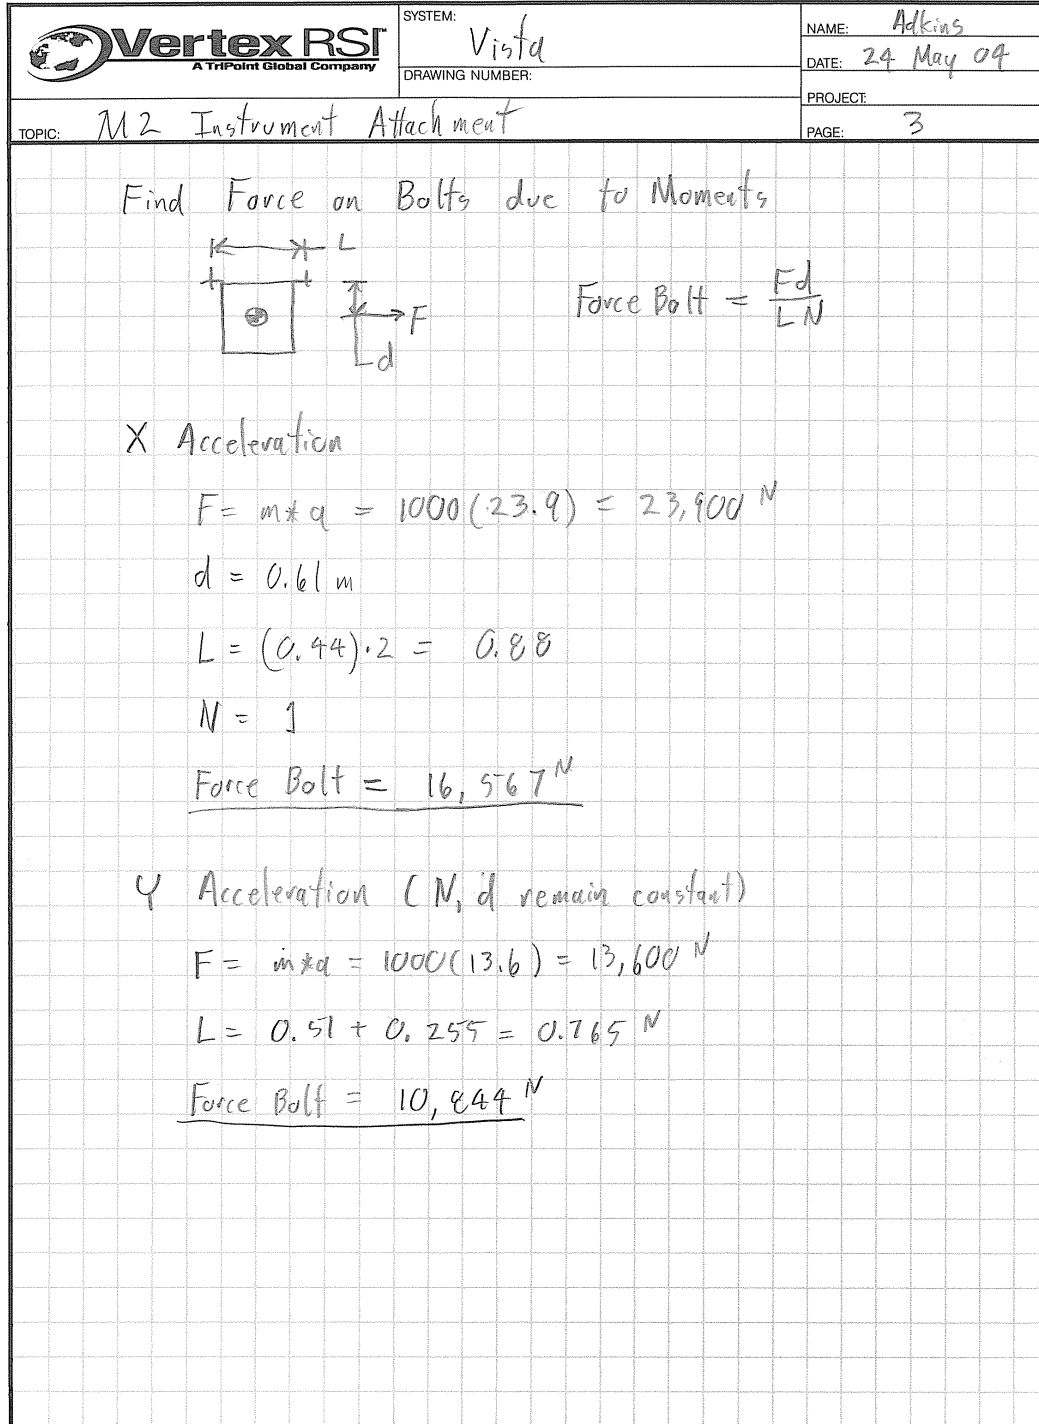 Vertex RSI
A TriPoint Global Company
SYSTEM: Vista
DRAWING NUMBER:
NAME: Adkins
DATE: 24 May 04
PROJECT:
TOPIC: M2 Instrument Attachment
PAGE: 3
Find Force on Bolts due to Moments
L
F
d
Force Bolt = Fd / L N
X Acceleration
F = m*a = 1000(23.9) = 23,900 N
d = 0.61 m
L = (0.44)·2 = 0.88
N = 1
Force Bolt = 16,567 N
Y Acceleration (N, d remain constant)
F = m*a = 1000(13.6) = 13,600 N
L = 0.51 + 0.255 = 0.765 N
Force Bolt = 10,844 N